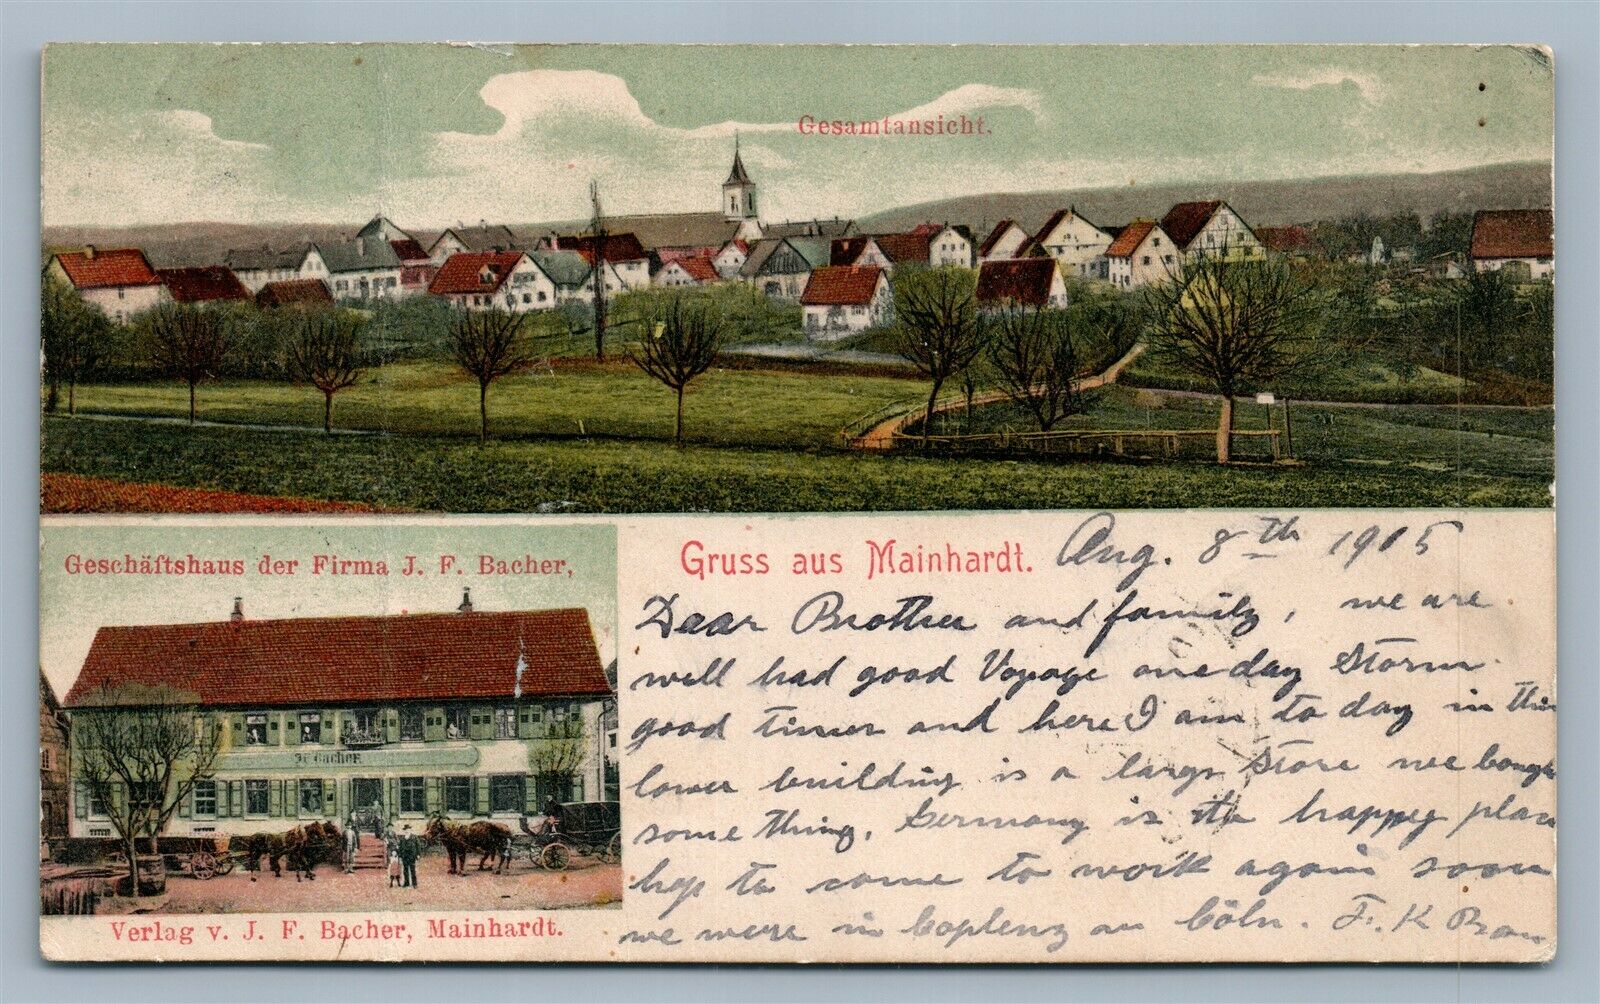 Gesamtansicht.
Geschäftshaus der Firma J. F. Bacher,
J F Bacher
Verlag v. J. F. Bacher, Mainhardt.
Gruss aus Mainhardt.
Aug. 8th 1905
Dear Brother and family, we are
well had good Voyage one day Storm
good times and here I am to day in this
lower building is a large Store we bought
some thing, Germany is the happy place
hop to come to work again soon
we were in Coplenz an Cöln. F. K